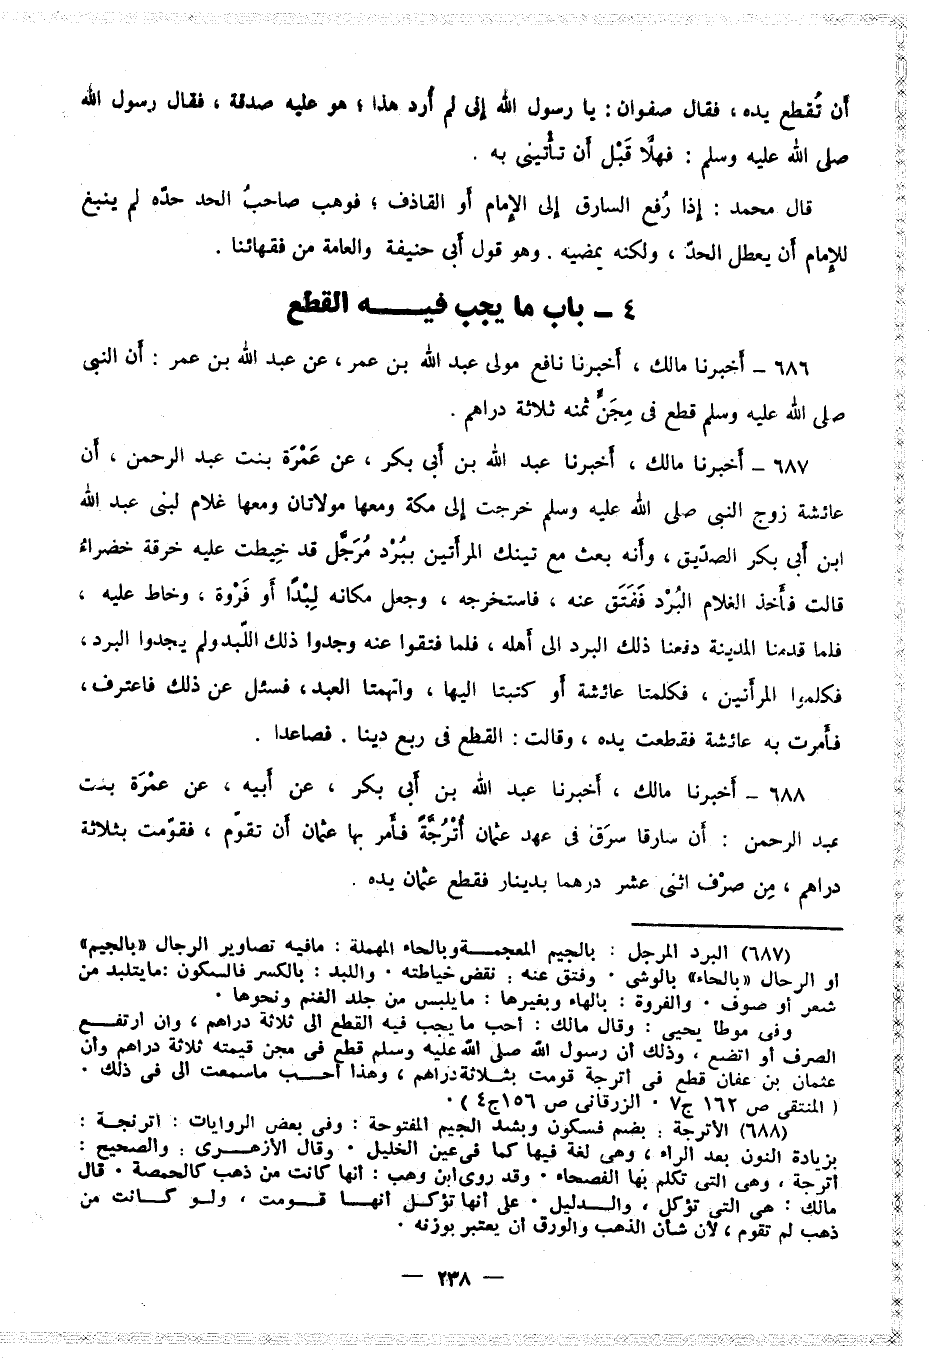 أن تُقطع يده ، فقال صفوان : يا رسول الله إنى لم أرد هذا ؛ هو عليه صدقة ، فقال رسول الله
صلى الله عليه وسلم : فهلَّا قَبْل أن تأتينى به .
قال محمد : إذا رُفع السارق إلى الإمام أو القاذف ؛ فوهب صاحبُ الحد حدّه لم ينبغ
للإمام أن يعطل الحدّ ، ولكنه يمضيه . وهو قول أبى حنيفة والعامة من فقهائنا .
٤ ــ باب ما يجب فيــــه القطع
٦٨٦ ــ أخبرنا مالك ، أخبرنا نافع مولى عبد الله بن عمر ، عن عبد الله بن عمر : أن النبى
صلى الله عليه وسلم قطع فى مِجَنٍّ ثمنه ثلاثة دراهم .
٦٨٧ ــ أخبرنا مالك ، أخبرنا عبد الله بن أبى بكر ، عن عَمْرَة بنت عبد الرحمن ، أن
عائشة زوج النبى صلى الله عليه وسلم خرجت إلى مكة ومعها مولاتان ومعها غلام لبنى عبد الله
ابن أبى بكر الصدّيق ، وأنه بعث مع تينك المرأتين ببُرْد مُرَجَّل قد خِيطت عليه خرقة خضراءُ
قالت فأخذ الغلام البُرْد فَفَتَق عنه ، فاستخرجه ، وجعل مكانه لِبْدًا أو فَرْوة ، وخاط عليه ،
فلما قدمنا المدينة دفعنا ذلك البرد الى أهله ، فلما فتقوا عنه وجدوا ذلك اللّبد ولم يجدوا البرد ،
فكلموا المرأتين ، فكلمتا عائشة أو كتبتا اليها ، واتهمتا العبد ، فسئل عن ذلك فاعترف ،
فأمرت به عائشة فقطعت يده ، وقالت : القطع فى ربع دينا . فصاعدا .
٦٨٨ ــ أخبرنا مالك ، أخبرنا عبد الله بن أبى بكر ، عن أبيه ، عن عمْرَة بنت
عبد الرحمن : أن سارقا سرَق فى عهد عثمان أُتْرُجَّةً فأمر بها عثمان أن تقوّم ، فقوّمت بثلاثة
دراهم ، مِن صرْف اثنى عشر درهما بدينار فقطع عثمان يده .
(٦٨٧) البرد المرجل : بالجيم المعجمــة وبالحاء المهملة : مافيه تصاوير الرجال «بالجيم»
أو الرحال «بالحاء» بالوشى . وفتق عنه : نقض خياطته . واللبد : بالكسر فالسكون : مايتلبد من
شعر أو صوف . والفروة : بالهاء وبغيرها : مايلبس من جلد الغنم ونحوها .
وفى موطأ يحيى : وقال مالك : أحب ما يجب فيه القطع الى ثلاثة دراهم ، وان ارتفــع
الصرف أو اتضع ، وذلك أن رسول الله صلى الله عليه وسلم قطع فى مجن قيمته ثلاثة دراهم وأن
عثمان بن عفان قطع فى أترجة قومت بثلاثة دراهم ، وهذا أحــب ماسمعت الى فى ذلك .
( المنتقى ص ١٦٢ ج٧ . الزرقانى ص ١٥٦ ج٤ ) .
(٦٨٨) الأترجة : بضم فسكون وبشد الجيم المفتوحة : وفى بعض الروايات : أترنجــة :
بزيادة النون بعد الراء ، وهى لغة فيها كما فى عين الخليل . وقال الأزهــرى : والصحيح :
أترجة ، وهى التى تكلم بها الفصحاء . وقد روى ابن وهب : أنها كانت من ذهب كالحمصة . قال
مالك : هى التى تؤكل ، والــدليل . على أنها تؤكــل أنهــا قــومت ، ولــو كــانت من
ذهب لم تقوم ، لأن شأن الذهب والورق أن يعتبر بوزنه .
— ٢٣٨ —